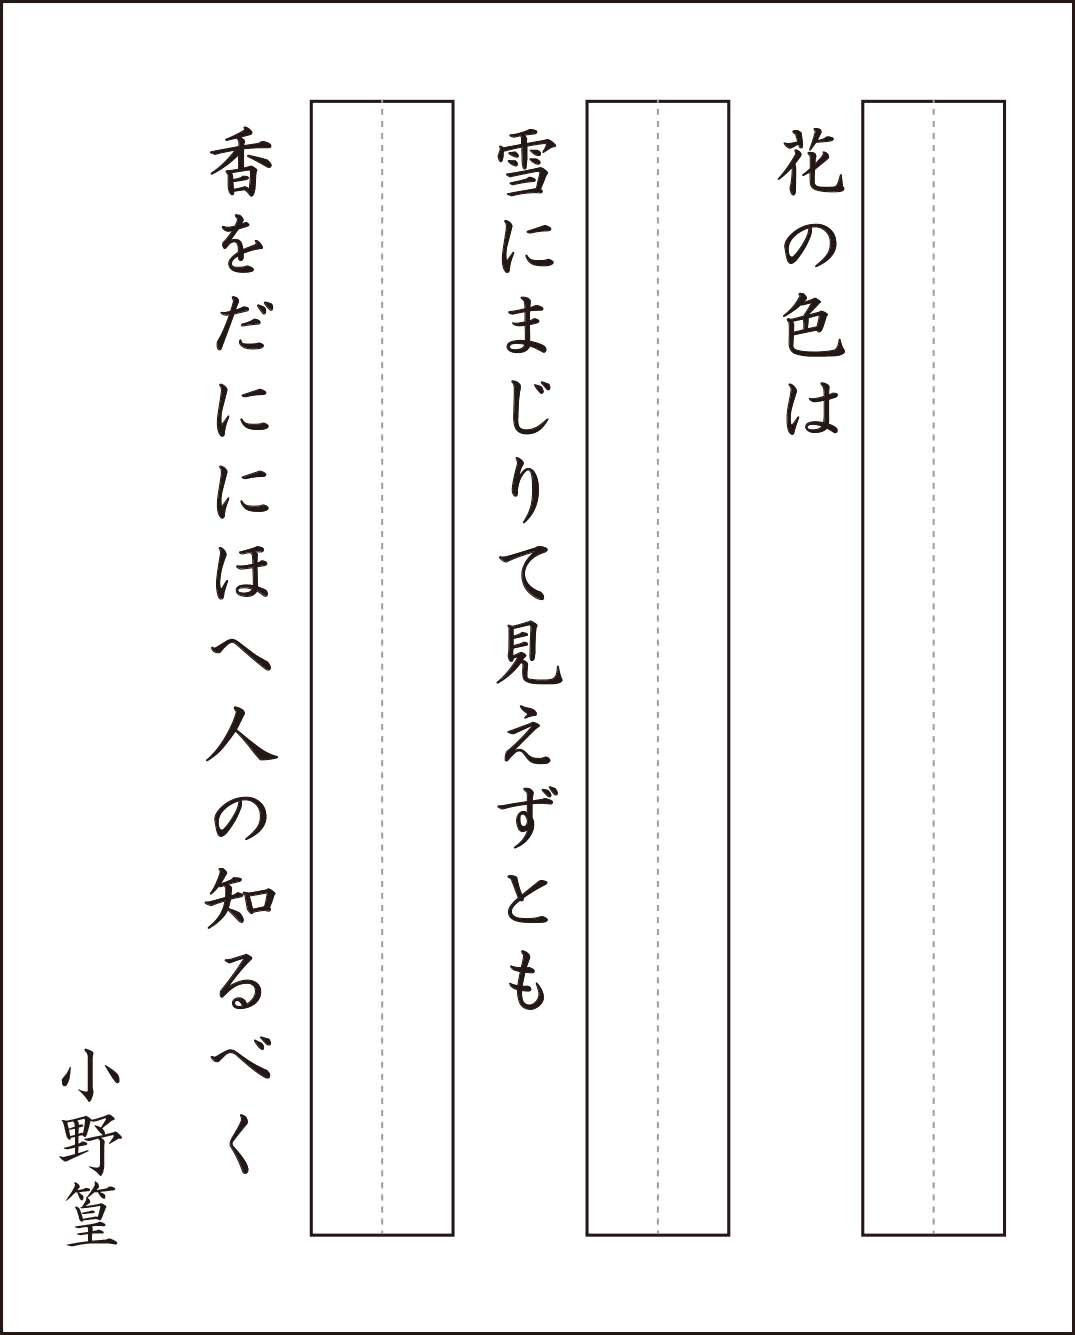 花の色は
雪にまじりて見えずとも
香をだににほへ人の知るべく
小野篁